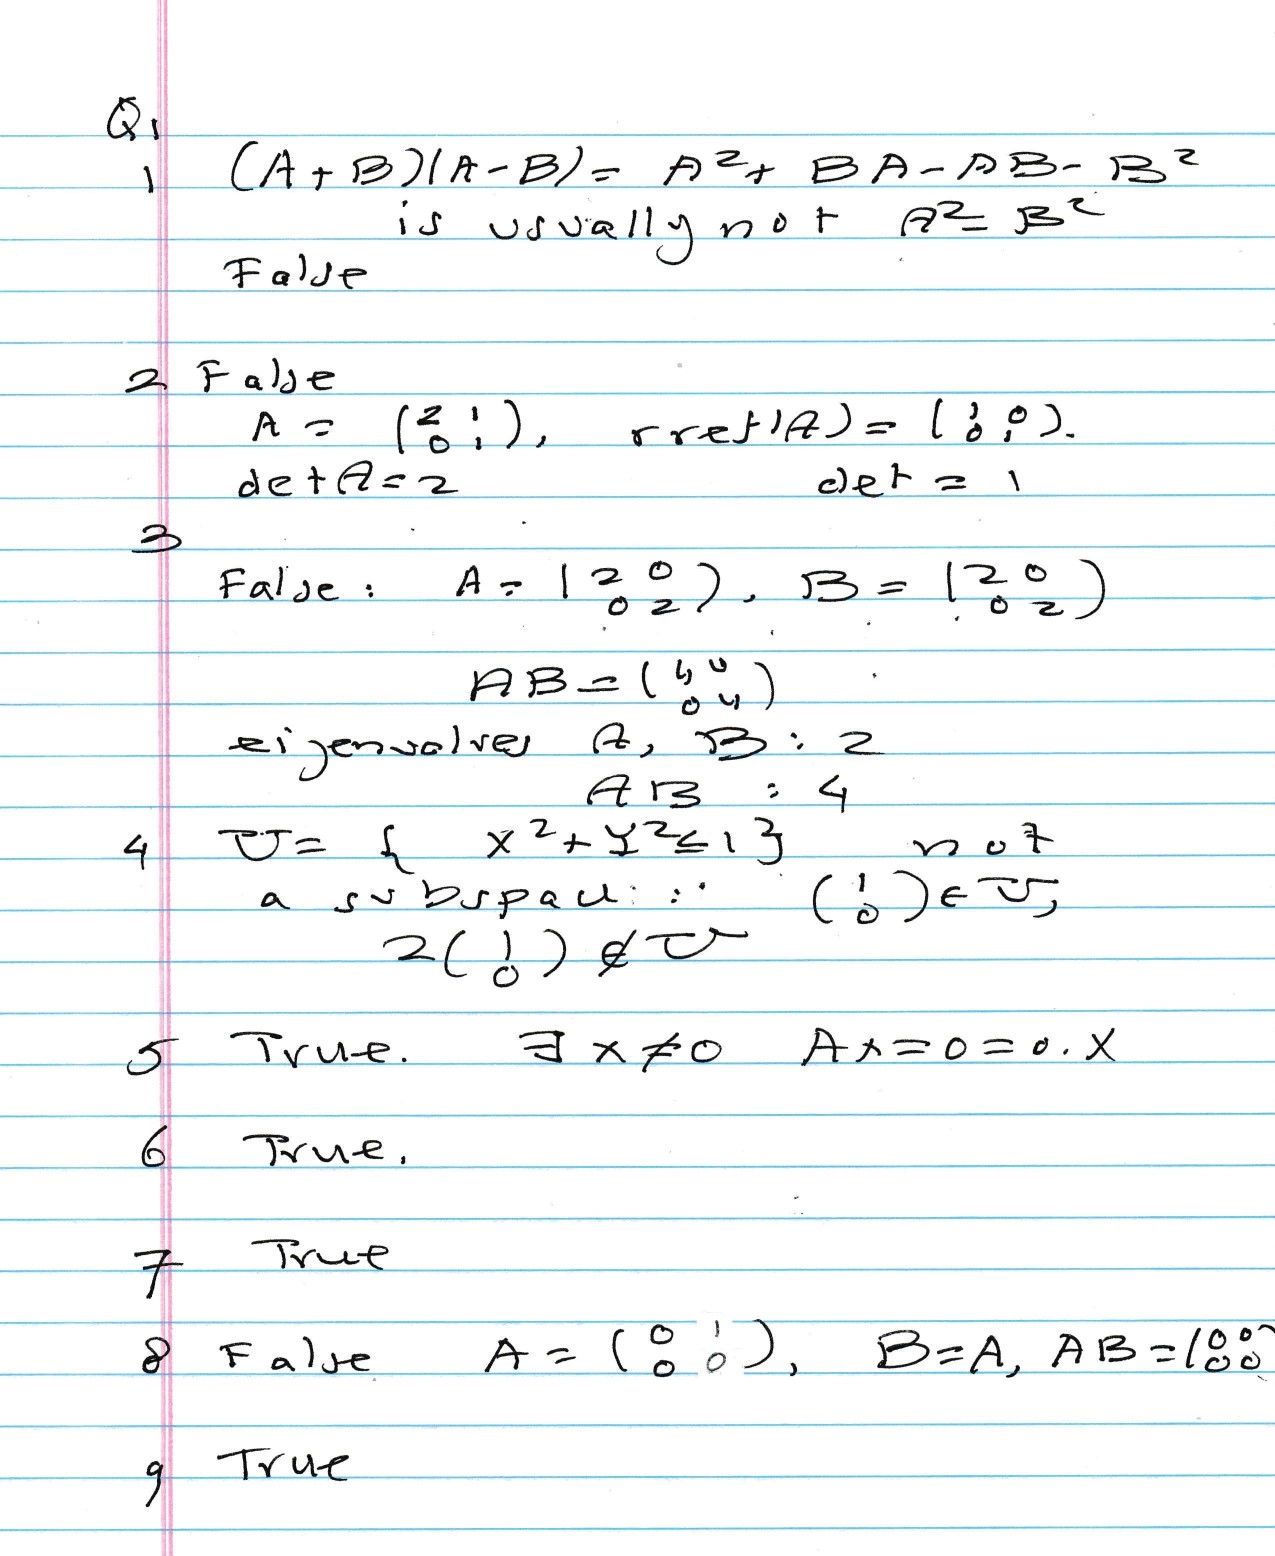 Q1
1 (A+B)(A-B) = A² + BA - AB - B²
is usually not A² - B²
False
2 False
A = (2 1; 0 1), rref(A) = (1 0; 0 1).
det A = 2 det = 1
3
False: A = (2 0; 0 2), B = (2 0; 0 2)
AB = (4 0; 0 4)
eigenvalues A, B: 2
AB : 4
4 U = { x² + y² ≤ 1 } not
a subspace ∵ (1; 0) ∈ U,
2(1; 0) ∉ U
5 True. ∃ x ≠ 0 Ax = 0 = 0.x
6 True.
7 True
8 False A = (0 1; 0 0), B = A, AB = (0 0; 0 0)
9 True